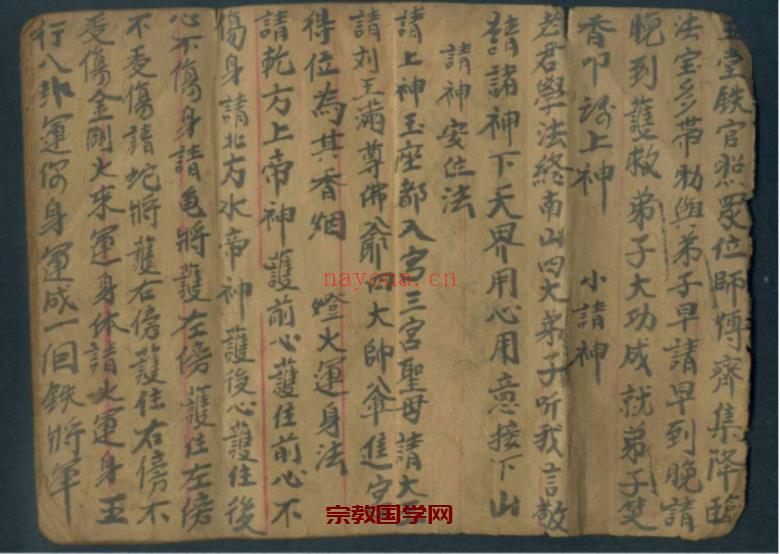 玉堂鉄官照眾位師傅齊集降臨
法室多帶助與弟子早請早到晚請
晚到護救弟子大功成就弟子焚
香叩請上神 小請神
老君學法終南山四大弟子听我言敎
請諸神下天界用心用意接下山
請神安位法
請上神玉座都入宮三宮聖母請大王
請刘王滿尊佛爺四大帥爺進宮
得位為其香烟 燈火運身法
請乾方上帝神護前心護住前心不
傷身請北方水帝神護後心護住後
心不傷身請龟將護左傍護住左傍
不受傷請蛇將護右傍護住右傍不
受傷金剛火来運身体請火運身五
行八卦運你身運成一個鉄將軍
nayona.cn
宗教国学网